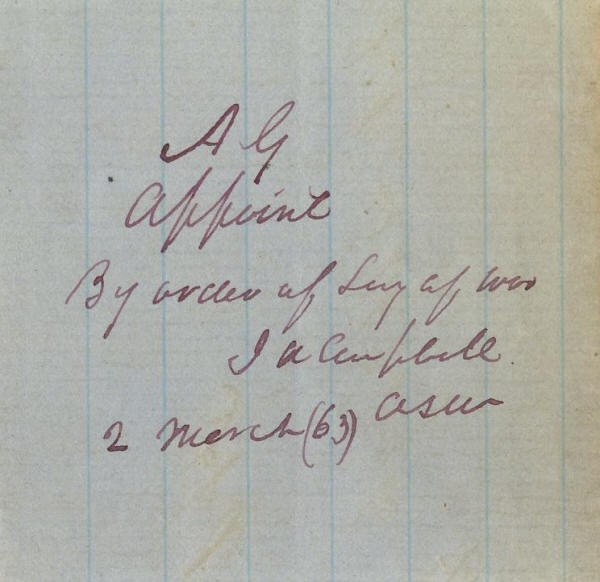 A G
Appoint
By order of Secy of War
J A Campbell
ASW
2 March (63)